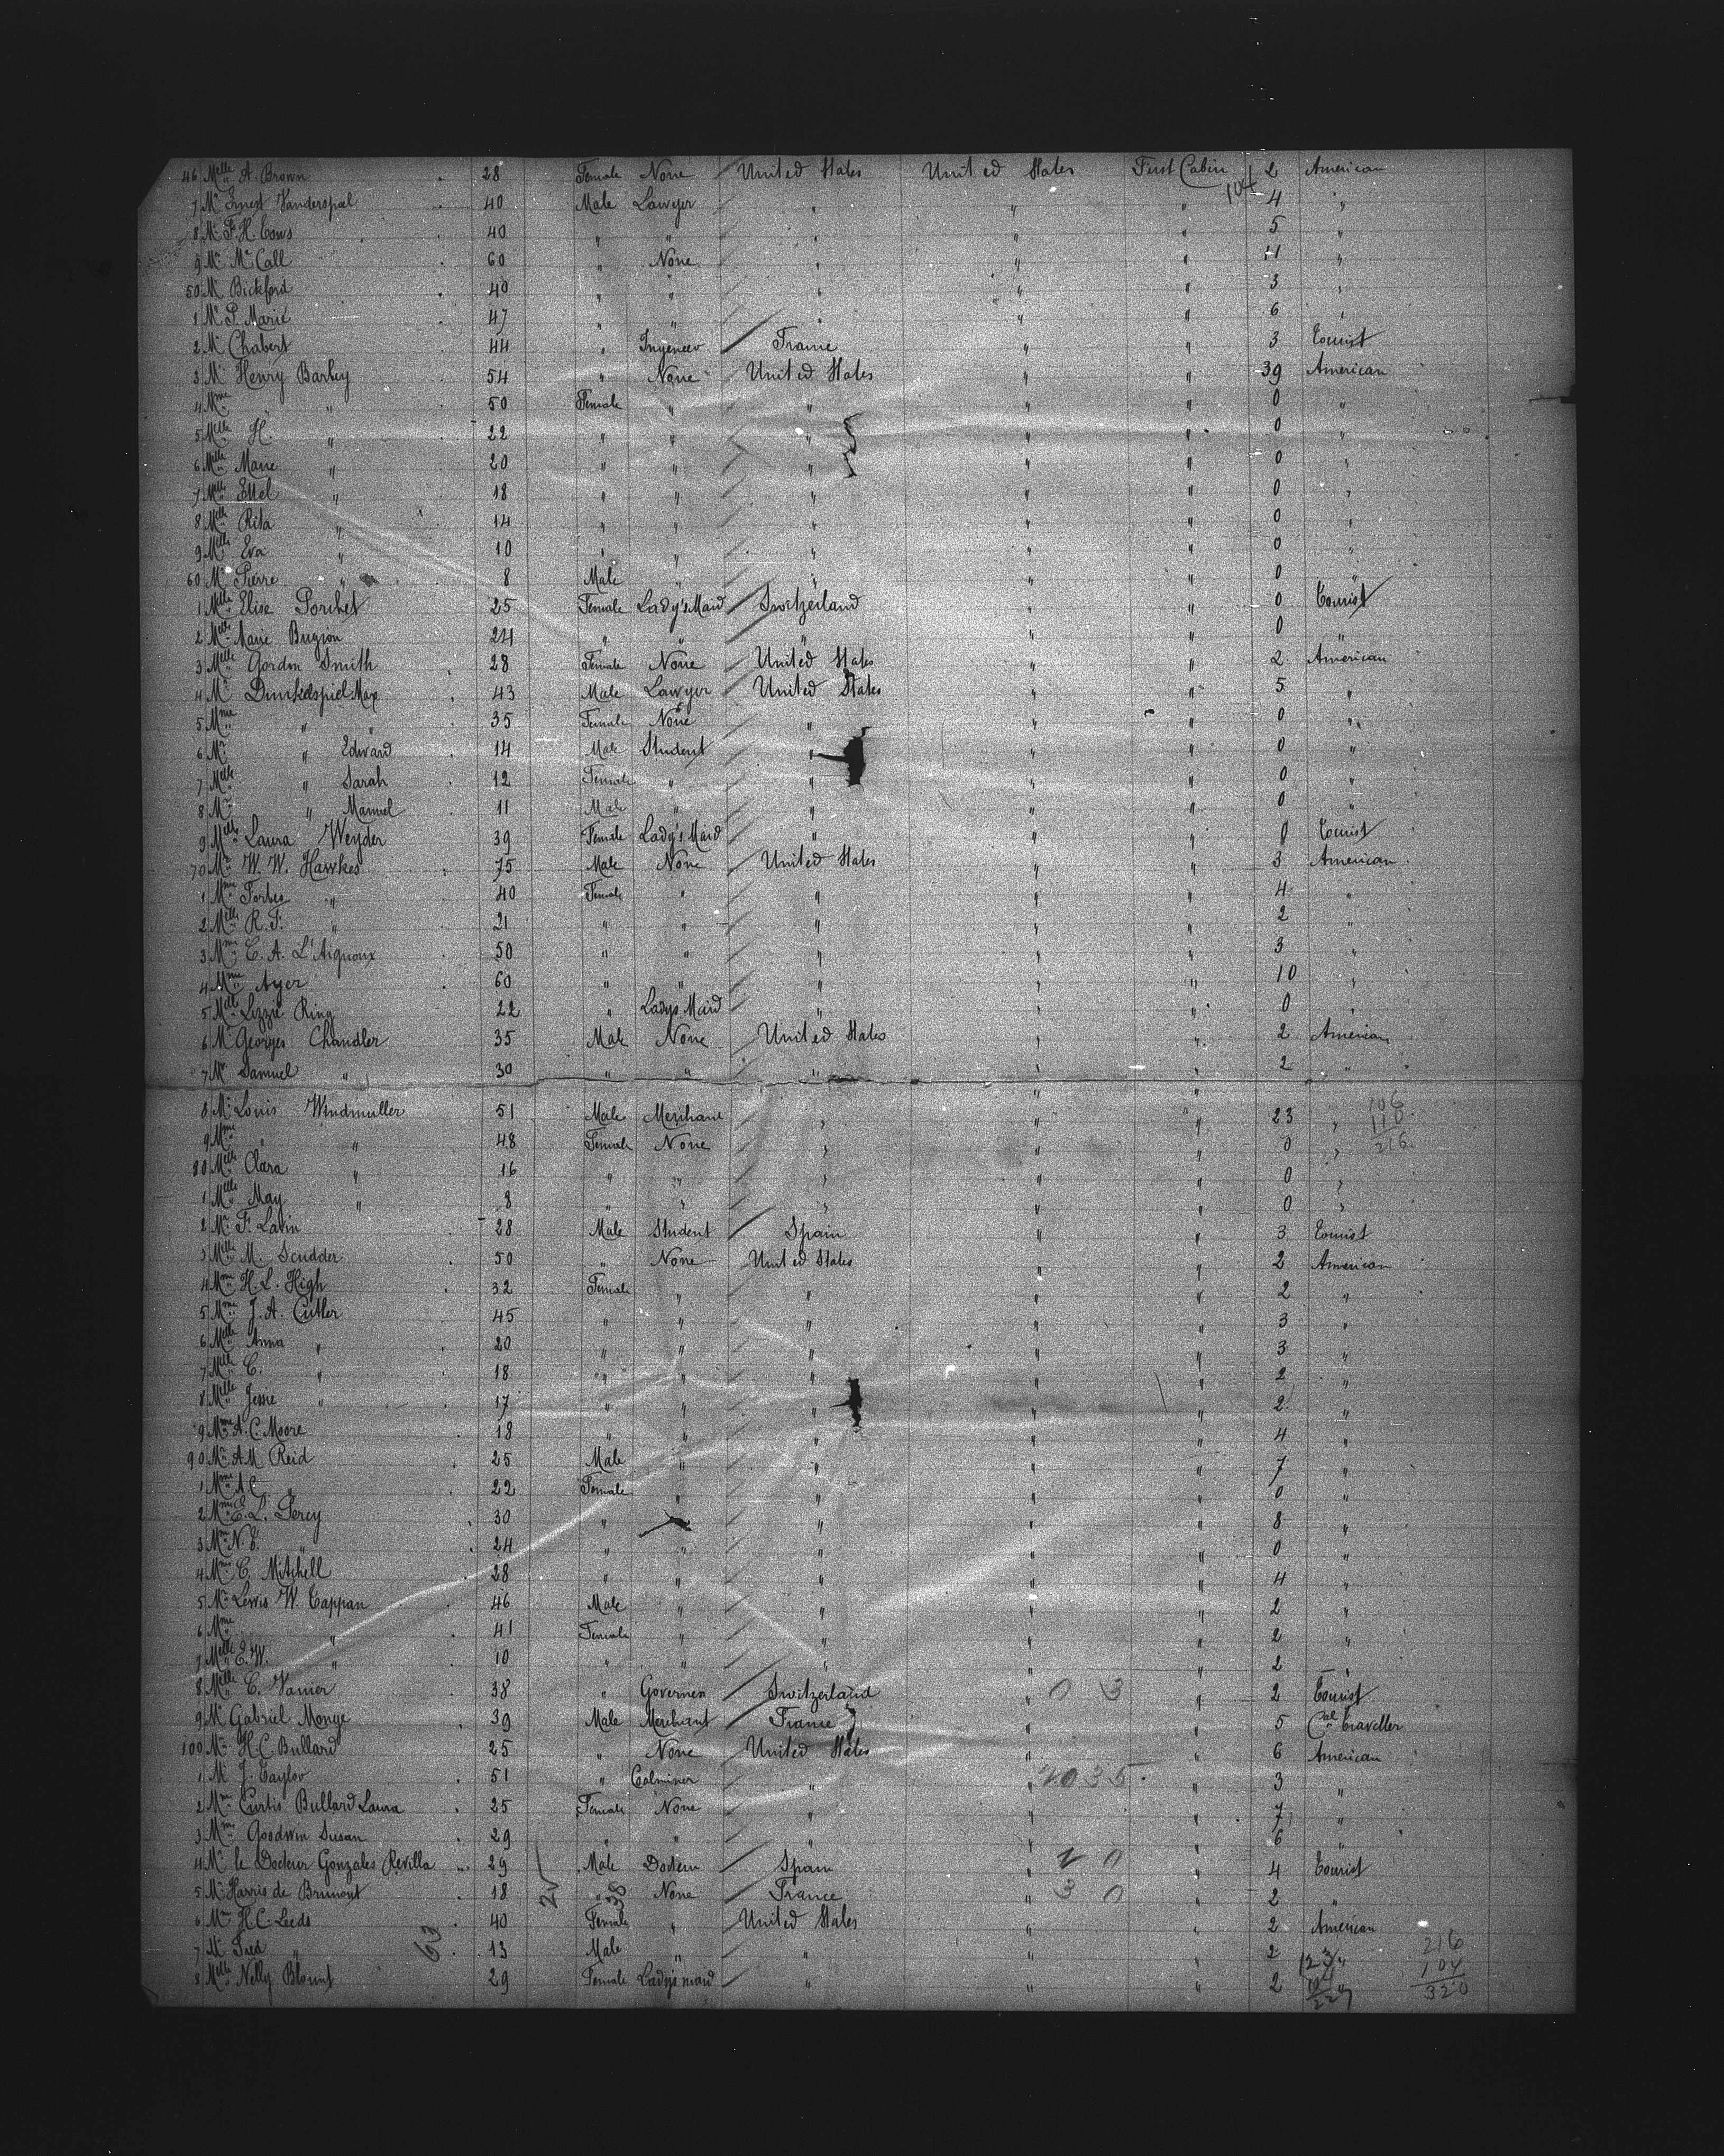 46 Melle A. Brown 28 Female None United States United States First Cabin 2 American
104
7 Mr Ernest Vanderspal 40 Male Lawyer " " " 4 "
8 Mr F. H. Cows 40 " " " " " 5 "
9 Mr Mc Call 60 " None " " " 11 "
50 Mr Bickford 40 " " " " " 3 "
1 Mr P. Marié 47 " " " " " 6 "
2 Mr Chabert 44 " Ingeneer France " " 3 Tourist
3 Mr Henry Barbey 54 " None United States " " 39 American
4 Mme " " 50 Female " " " " 0 "
5 Melle H. " 22 " " " " " 0 "
6 Melle Marie " 20 " " " " " 0 "
7 Melle Ettel " 18 " " " " " 0 "
8 Melle Rita " 14 " " " " " 0 "
9 Melle Eva " 10 " " " " " 0 "
60 Mr Pierre " 8 Male " " " " 0 "
1 Melle Elise Porchet 25 Female Lady's Maid Switzerland " " 0 Tourist
2 Melle Marie Bugion 24 " " " " " 0 "
3 Melle Gordon Smith 28 Female None United States " " 2 American
4 Mr Dunkelspiel Max 43 Male Lawyer United States " " 5 "
5 Mme " 35 Female None " " " 0 "
6 Mr " Edward 14 Male Student " " " 0 "
7 Melle " Sarah 12 Female " " " " 0 "
8 Mr " Manuel 11 Male " " " " 0 "
9 Melle Laura Weyder 39 Female Lady's Maid " " " 0 Tourist
70 Mr W. W. Hawkes 75 Male None United States " " 3 American
1 Mme Forbes " 40 Female " " " " 4 "
2 Melle R. F. " 21 " " " " " 2 "
3 Mme C. A. L'Aignoux 50 " " " " " 3 "
4 Mme Ayer 60 " " " " " 10 "
5 Melle Lizzie Ring 22 " Ladys Maid " " " 0 "
6 Mr Georges Chandler 35 Male None United States " " 2 American
7 Mr Samuel " 30 " " " " " 2 "
8 Mr Louis Windmuller 51 Male Merchant " " " 23 " 106
110
9 Mme " " 48 Female None " " " 0 " 216
80 Melle Clara " 16 " " " " " 0 "
1 Melle May " 8 " " " " " 0 "
2 Mr F. Lavin 28 Male Student Spain " " 3 Tourist
3 Melle M. Scudder 50 " None United States " " 2 American
4 Mme H. L. High 32 Female " " " " 2 "
5 Mme J. A. Cutler 45 " " " " " 3 "
6 Melle Anna " 20 " " " " " 3 "
7 Melle C. " 18 " " " " " 2 "
8 Melle Jessie " 17 " " " " " 2 "
9 Mme A. C. Moore 18 " " " " " 4 "
90 Mr A M Reid 25 Male " " " " 7 "
1 Mme A C. " 22 Female " " " " 0 "
2 Mme E. L. Percy 30 " " " " " 8 "
3 N. E. " 24 " " " " " 0 "
4 Mme C. Mitchell 28 " " " " " 4 "
5 Mr Lewis W. Tappan 46 Male " " " " 2 "
6 Mme " 41 Female " " " " 2 "
7 Melle E. W. " 10 " " " " " 2 "
8 Melle C. Vanier 38 " Governen Switzerland " 0 3 " 2 Tourist
9 Mr Gabriel Monge 39 Male Merchant France " " 5 Cal Traveller
100 Mr H C. Bullard 25 " None United States " " 6 American
1 Mr J. Taylor 51 " Calminer " " 2035 " 3 "
2 Mme Curtis Bullard Laura 25 Female None " " " 7 "
3 Mme Goodwin Susan 29 " " " " " 6 "
4 Mr le Docteur Gonzales Revilla 29 Male Docteur Spain " 2 0 " 4 Tourist
5 Mr Harris de Brimont 18 " None France " 3 0 " 2 "
6 Mme H C. Leeds 40 Female " United States " " 2 American
7 Mr Fred " 13 Male " " " " 2 " 216
104
8 Melle Nelly Blount 29 Female Lady's maid " " " 2 " 320